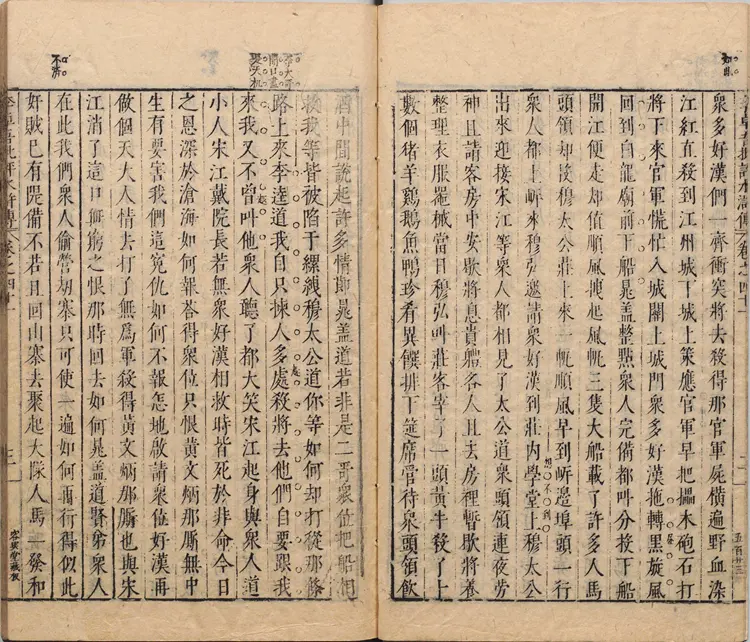 如畫
眾多好漢們一齊衝突將去殺得那官軍屍橫遍野血染
江紅直殺到江州城下城上策應官軍早把擂木砲石打
將下來官軍慌忙入城關上城門眾多好漢拖轉黑旋風
回到白龍廟前下船晁盖整點眾人完備都叫分投下船
開江便走却值順風拽起風帆三隻大船載了許多人馬
頭領却投穆太公莊上來一帆順風早到岍邊埠頭一行
眾人都上岍來穆弘邀請眾好漢到莊內學堂上穆太公
出來迎接宋江等眾人都相見了太公道眾頭領連夜勞
神且請客房中安歇將息貴體各人且去房裡暫歇將養
整理衣服噐械當日穆弘叫莊客宰了一頭黃牛殺了十
數個猪羊鷄鵝魚鴨珍肴異饌排下筵席管待眾頭領飲
想不到
酒中間說起許多情節晁盖道若非是二哥眾位把船相
救我等皆被陷于縲紲穆太公道你等如何却打從那條
路上來李逵道我自只揀人多處殺將去他們自要跟我
來我又不曾叫他眾人聽了都大笑宋江起身與眾人道
小人宋江戴院長若無眾好漢相救時皆死於非命今日
之恩深於滄海如何報荅得眾位只恨黃文炳那厮無中
生有要害我們這冤仇如何不報怎地啟請眾位好漢再
做個天大人情去打了無爲軍殺得黃文炳那厮也與宋
江消了這口無窮之恨那時回去如何晁盖道賢弟眾人
在此我們眾人偷營刼寨只可使一遍如何再行得似此
奸賊已有隄備不若且回山寨去聚起大隊人馬一發和
李卓吾批評水滸傳
卷之四十
容與堂藏板